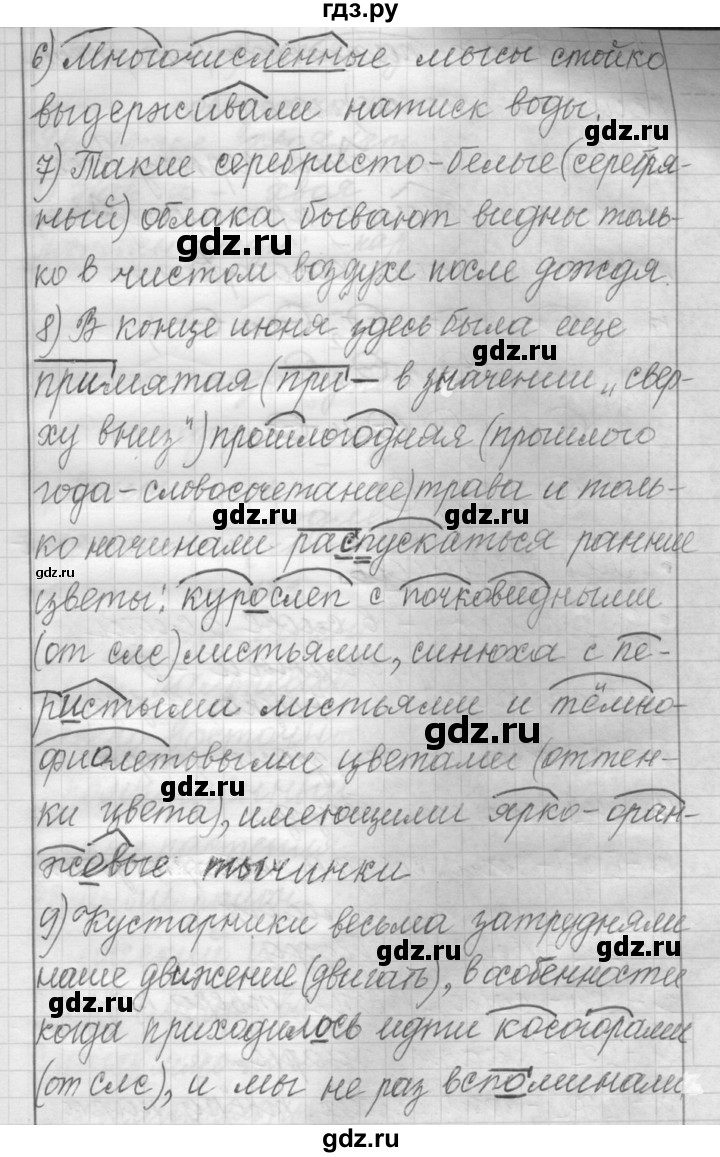 гдз.ру
6) Многочисленные мысы стойко
выдерживали натиск воды.
gdz.ru
7) Такие серебристо-белые (серебря-
ный) облака бывают видны толь-
gdz.ru
ко в чистом воздухе после дождя.
8) В конце июня здесь была еще
gdz.ru
примятая (при- в значении „свер-
ху вниз") прошлогодная (прошлого
года-словосочетание) трава и толь-
gdz.ru gdz.ru
ко начинали распускаться ранние
gdz.ru
цветы: курослеп с почковидными
(от слс) листьями, синюха с пе-
ристыми листьями и тёмно-
gdz.ru
фиолетовыми цветами (оттен-
gdz.ru
ки цвета), имеющими ярко-оран-
жевые тычинки
9) Кустарники весьма затрудняли
gdz.ru gdz.ru
наше движение (двигать), в особенности
gdz.ru
когда приходилось идти косогорами
(от слс), и мы не раз вспоминали
gdz.ru